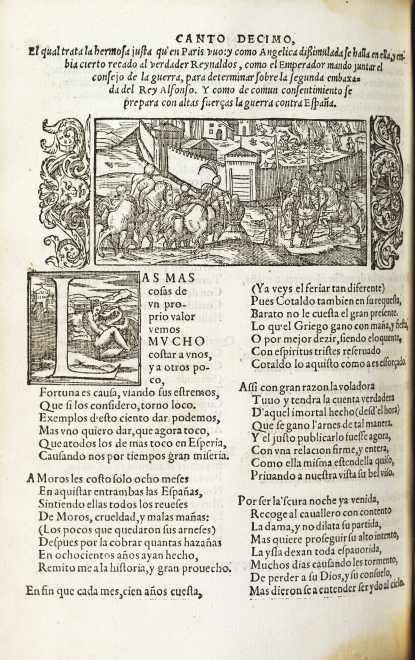 CANTO DECIMO.
El qual trata la hermosa justa qu'en Paris vuo: y como Angelica dissimulada se halla en ella, y em-
bia cierto recado al verdader Reynaldos, como el Emperador mando juntar el
consejo de la guerra, para determinar sobre la segunda embaxa-
da del Rey Alfonso. Y como de comun consentimiento se
prepara con altas fuerças la guerra contra España.
LAS MAS
cosas de
vn pro-
prio valor
vemos
MVCHO
costar a vnos,
ya otros po-
co,
Fortuna es causa, viando sus estremos,
Que si los considero, torno loco.
Exemplos d'esto ciento dar podemos,
Mas vno quiero dar, que agora toco,
Que atodos los de mas toco en Esperia,
Causando nos por tiempos gran miseria.
A Moros les costo solo ocho meses
En aquistar entrambas las Españas,
Sintiendo ellas todos los reueses
De Moros, crueldad, y malas mañas:
(Los pocos que quedaron sus arneses)
Despues por la cobrar quantas hazañas
En ochocientos años ayan hecho,
Remito me a la historia, y gran prouecho.
En fin que cada mes, cien años cuesta,
(Ya veys el feriar tan diferente)
Pues Cotaldo tambien en su requesta,
Barato no le cuesta el gran presente.
Lo qu'el Griego gano con maña, y fiesta,
O por mejor dezir, siendo eloquente,
Con espiritus tristes reseruado
Cotaldo lo aquisto como a es esforçado.
Assi con gran razon la voladora
Tuuo y tendra la cuenta verdadera
D'aquel imortal hecho (desd'el hora)
Que se gano l'arnes de tal manera.
Y el justo publicarlo fuesse agora,
Con vna relacion firme, y entera,
Como ella misma estendella quiso,
Priuando a nuestra vista su bel viso.
Por ser la'scura noche ya venida,
Recoge al cauallero con contento
La dama, y no dilata su partida,
Mas quiere proseguir su alto intento,
La ysla dexan toda espauorida,
Muchos dias causando les tormento,
De perder a su Dios, y su consuelo,
Mas dieron se a entender ser ydo al cielo.